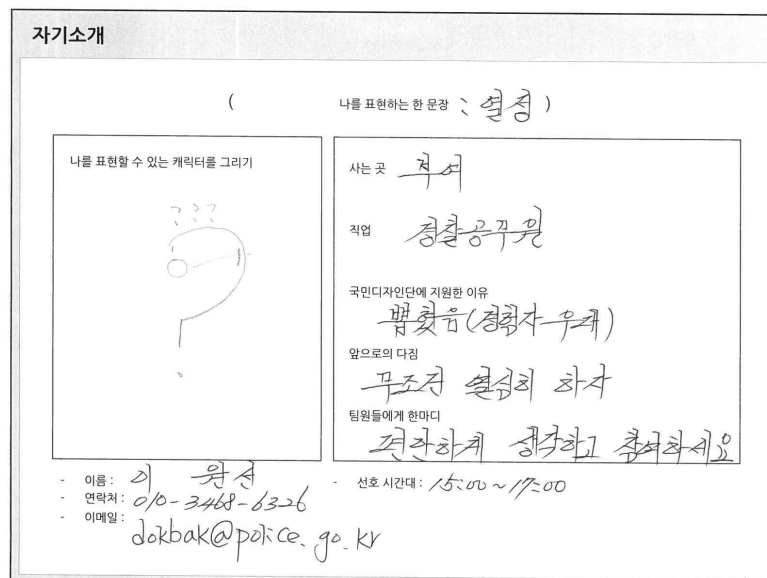 자기소개
( 나를 표현하는 한 문장 : 열정 )
나를 표현할 수 있는 캐릭터를 그리기
? ? ?
사는 곳 부여
직업 경찰공무원
국민디자인단에 지원한 이유
뽑혔음(경험자 우대)
앞으로의 다짐
무조건 열심히 하자
팀원들에게 한마디
편안하게 생각하고 참여하세요
- 이름 : 이
- 연락처 : 010-3468-6326
- 이메일 : dokbak@police.go.kr
- 선호 시간대 : 15:00~17:00